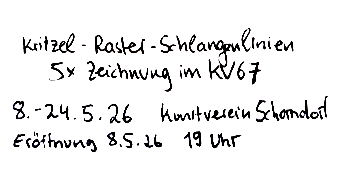 Kritzel - Raster - Schlangenlinien
5x Zeichnung im KV67
8.-24.5.26 Kunstverein Schorndorf
Eröffnung 8.5.26 19 Uhr